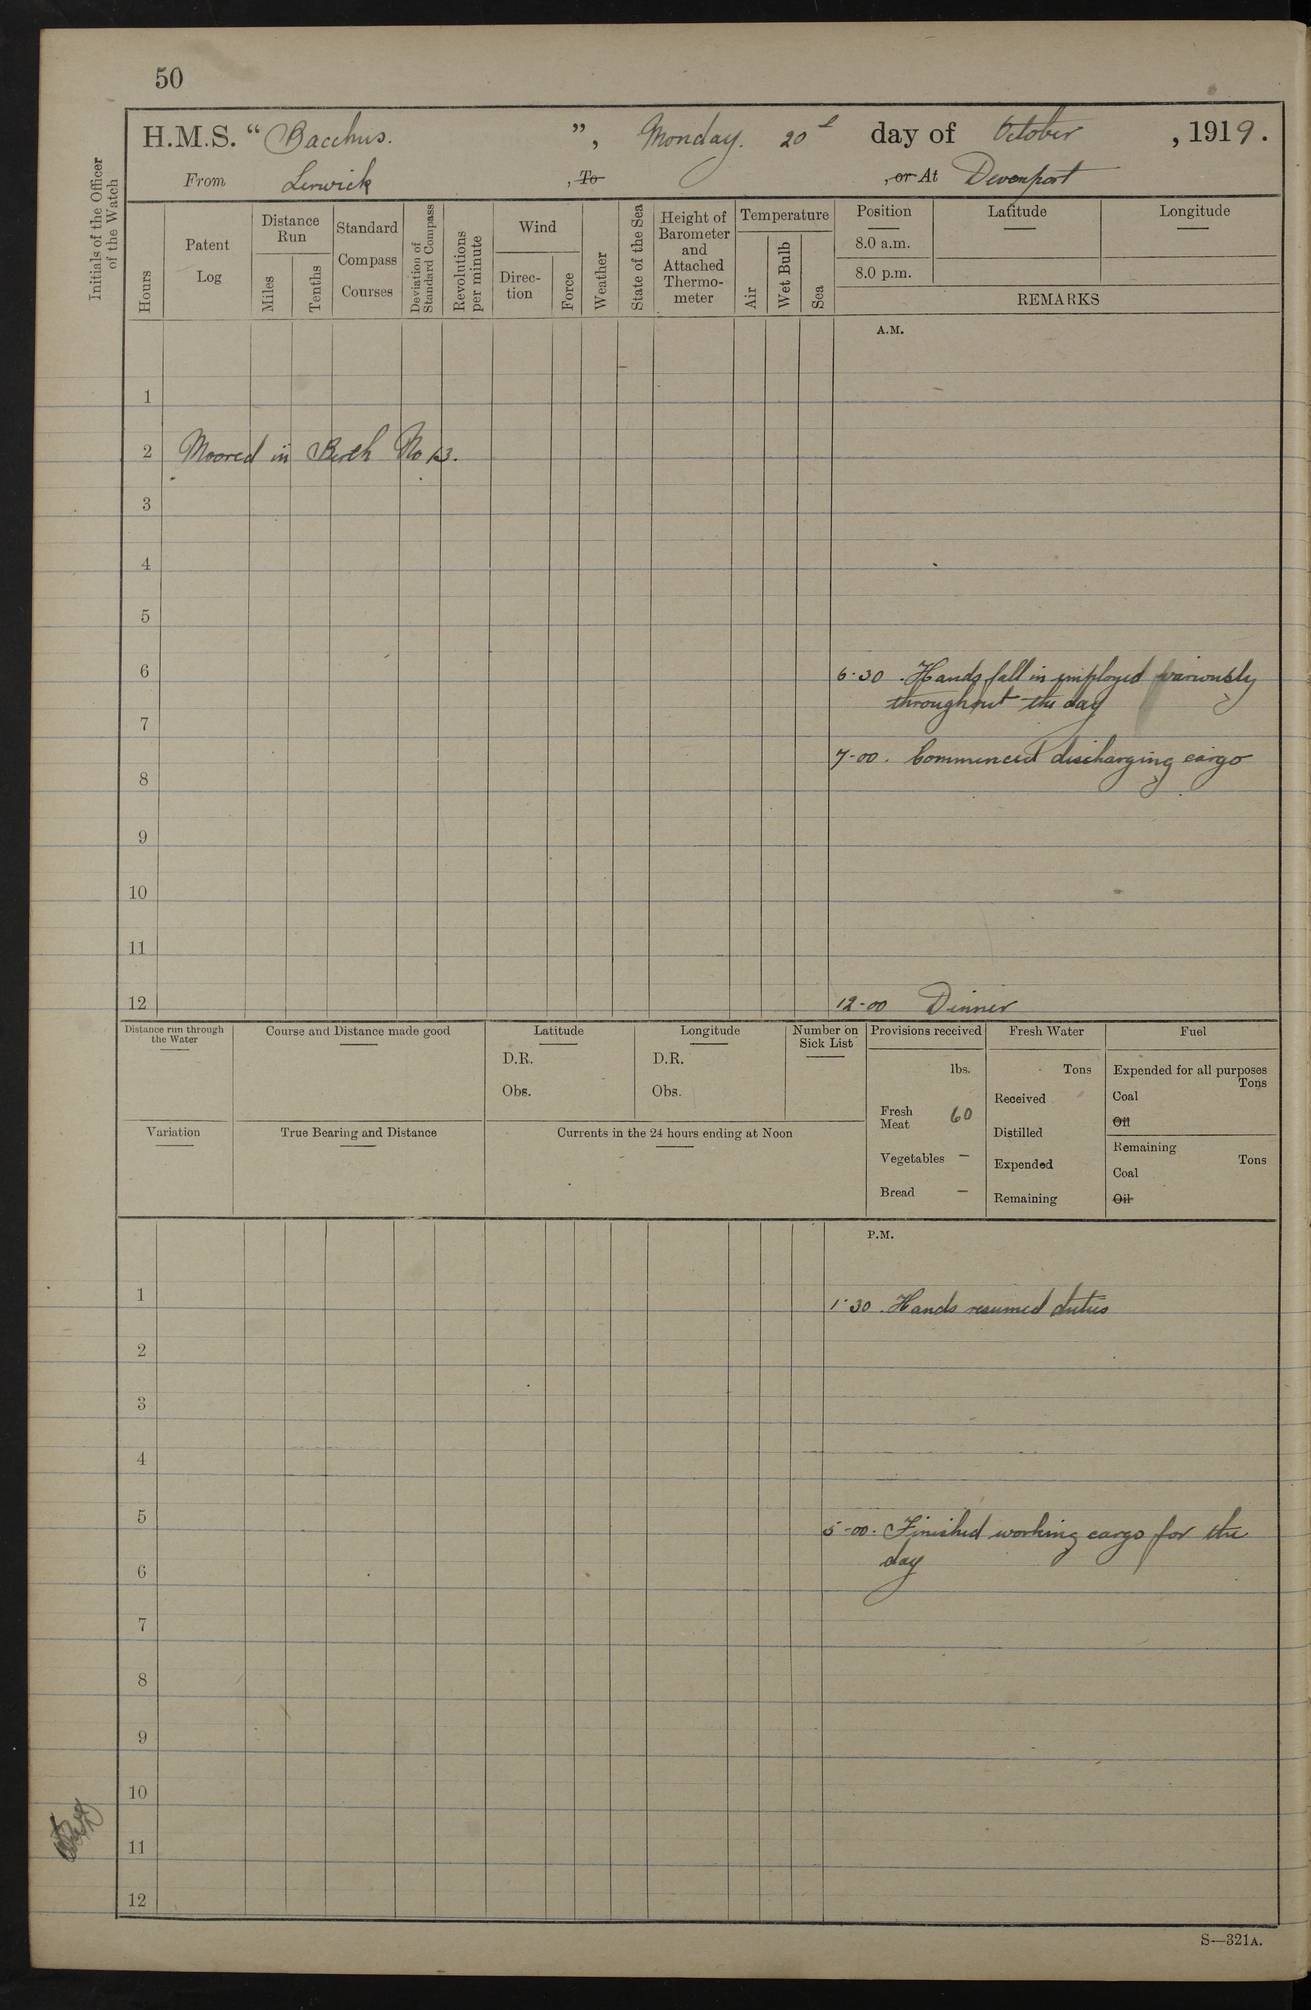 50
H.M.S. “ Bacchus. ”, Monday. 20th day of October , 1919.
From Lerwick , To , or At Devonport
Initials of the Officer of the Watch
Hours
Patent Log
Distance Run
Miles
Tenths
Standard Compass Courses
Deviation of Standard Compass
Revolutions per minute
Wind
Direction
Force
Weather
State of the Sea
Height of Barometer and Attached Thermometer
Temperature
Air
Wet Bulb
Sea
Position Latitude Longitude
8.0 a.m.
8.0 p.m.
REMARKS
A.M.
1
2 Moored in Berth No 13.
3
4
5
6
6·30 . Hands fall in employed variously
throughout the day
7
7-00 . Commenced discharging cargo
8
9
10
11
12 12-00 Dinner
Distance run through the Water
Course and Distance made good
Latitude
D.R.
Obs.
Longitude
D.R.
Obs.
Number on Sick List
Provisions received
lbs.
Fresh Meat 60
Vegetables —
Bread —
Fresh Water
Tons
Received
Distilled
Expended
Remaining
Fuel
Expended for all purposes
Tons
Coal
Oil
Remaining
Tons
Coal
Oil
Variation
True Bearing and Distance
Currents in the 24 hours ending at Noon
P.M.
1
1·30 . Hands resumed duties
2
3
4
5
5-00 . Finished working cargo for the
day
6
7
8
9
10
11
12
S—321A.